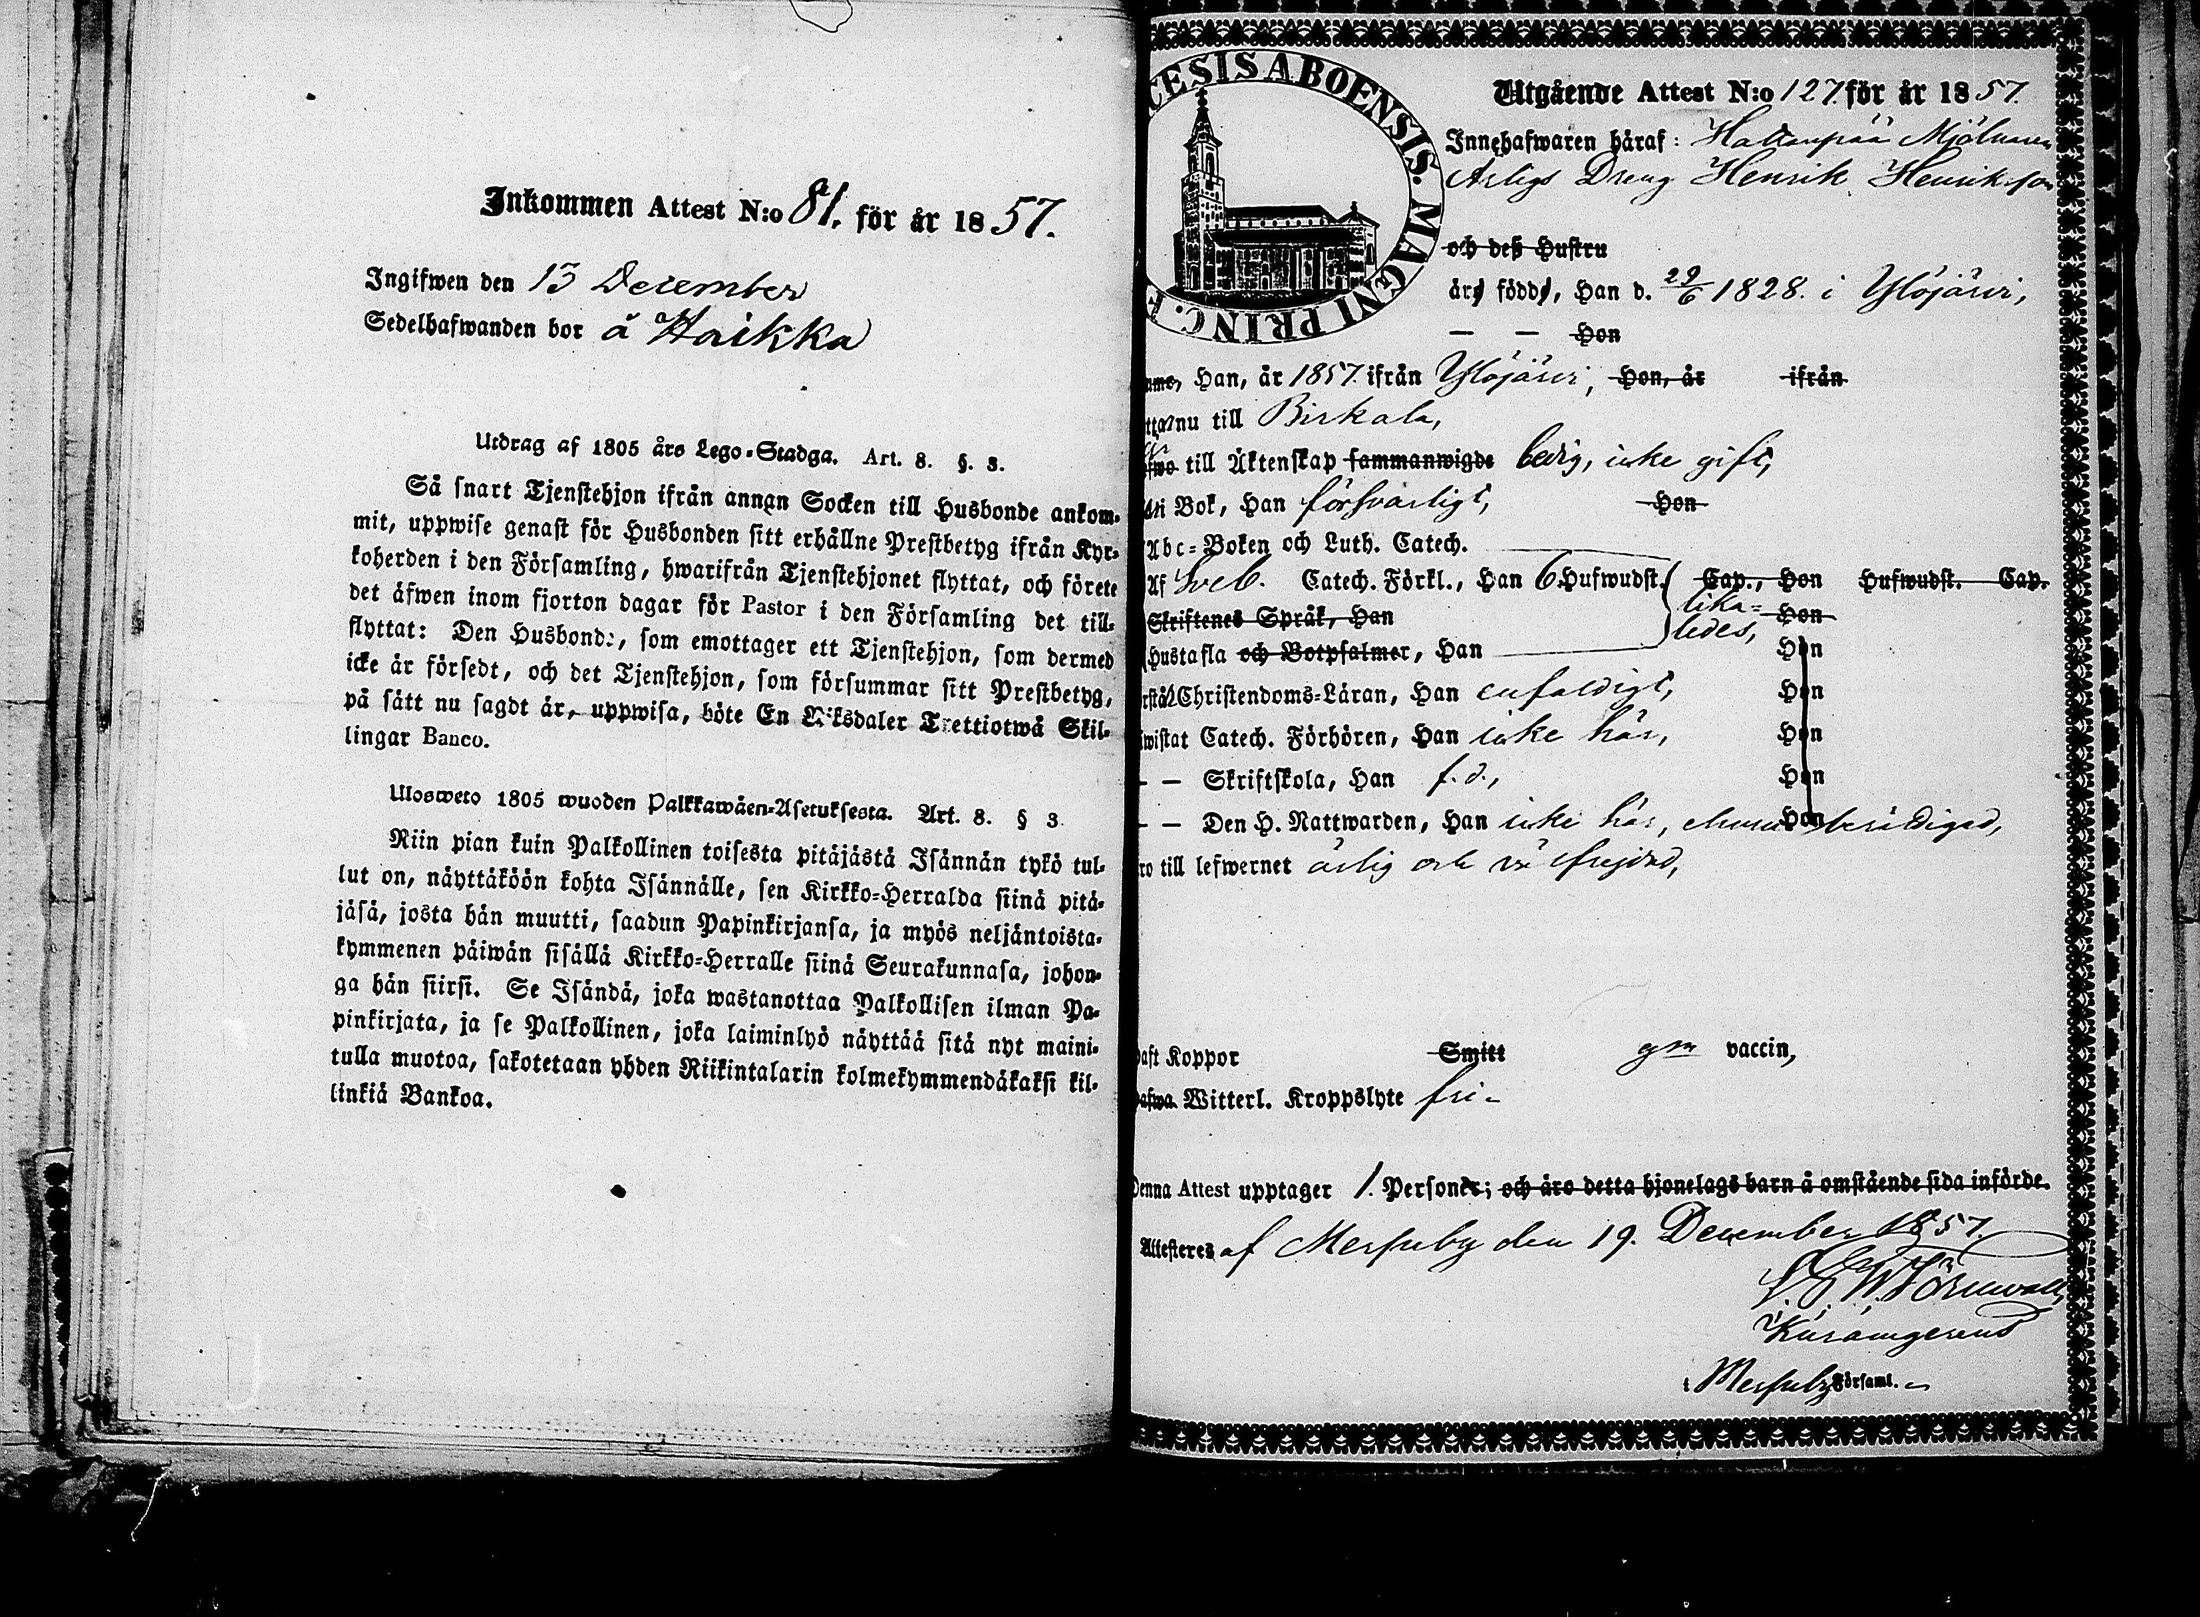 Inkommen Attest N:o 81. för år 1857.
Ingifwen den 13 December
Sedelhafwanden bor å Haikka
Utdrag af 1805 års Lego-Stadga. Art. 8. §. 3.
Så snart Tjenstehjon ifrån annan Socken till Husbonde ankom-
mit, uppwise genast för Husbonden sitt erhållne Prestbetyg ifrån Kyr-
koherden i den Församling, hwarifrån Tjenstehjonet flyttat, och förete
det äfwen inom fjorton dagar för Pastor i den Församling det till-
flyttat: Den Husbonde, som emottager ett Tjenstehjon, som dermed
icke är försedt, och det Tjenstehjon, som försummar sitt Prestbetyg,
på sätt nu sagdt är, uppwisa, böte En Riksdaler Trettiotwå Skil-
lingar Banco.
Ulosweto 1805 wuoden Palkkawäen-Asetuksesta. Art. 8. § 3.
Niin pian kuin Palkollinen toisesta pitäjästä Isännän tykö tul-
lut on, näyttäköön kohta Isännälle, sen Kirkko-Herralda siinä pitä-
jäsä, josta hän muutti, saadun Papinkirjansa, ja myös neljäntoista-
kymmenen päiwän sisällä Kirkko-Herralle siinä Seurakunnasa, johon-
ga hän siirsi. Se Isändä, joka wastanottaa Palkollisen ilman Pa-
pinkirjata, ja se Palkollinen, joka laiminlyö näyttää sitä nyt maini-
tulla muotoa, sakotetaan yhden Riikintalarin kolmekymmendäkaksi kil-
linkiä Bankoa.
CESIS ABOENSIS. MAGNI PRINC. F
Utgående Attest N:o 127. för år 1857.
Innehafwaren häraf: Hattanpää Mjölnaren
Dreng Henrik Henriksson
och deß Hustru
äro födde, Han d. 29/6 1828. i Ylöjärvi,
— — Hon
Han, år 1857. ifrån Ylöjärvi, Hon, år ifrån
nu till Birkala,
till Äktenskap sammanwigde ledig, icke gift,
Bok, Han försvarligt, Hon
Abc-Boken och Luth. Catech.
Af Sveb. Catech. Förkl., Han 6 Hufwudst. Cap., Hon Hufwudst. Cap.
Skriftenes Språk, Han lika- Hon
ledes,
Hustafla och Botpsalmer, Han Hon
Christendoms-Läran, Han enfaldigt, Hon
wistat Catech. Förhören, Han icke här, Hon
— — Skriftskola, Han f. d., Hon
— — Den H. Nattwarden, Han icke här, ehuru berättigad, Hon
ro till lefwernet ärlig och väl frejdad,
haft Koppor Smitt gm vaccin,
hafwa Witterl. Kroppslyte fri-
Denna Attest upptager 1. Personer; och äro detta hjonelags barn å omstående sida införde.
Attesteres af Messuby den 19. December 1857.
Törnwall,
i Messuby Församl.